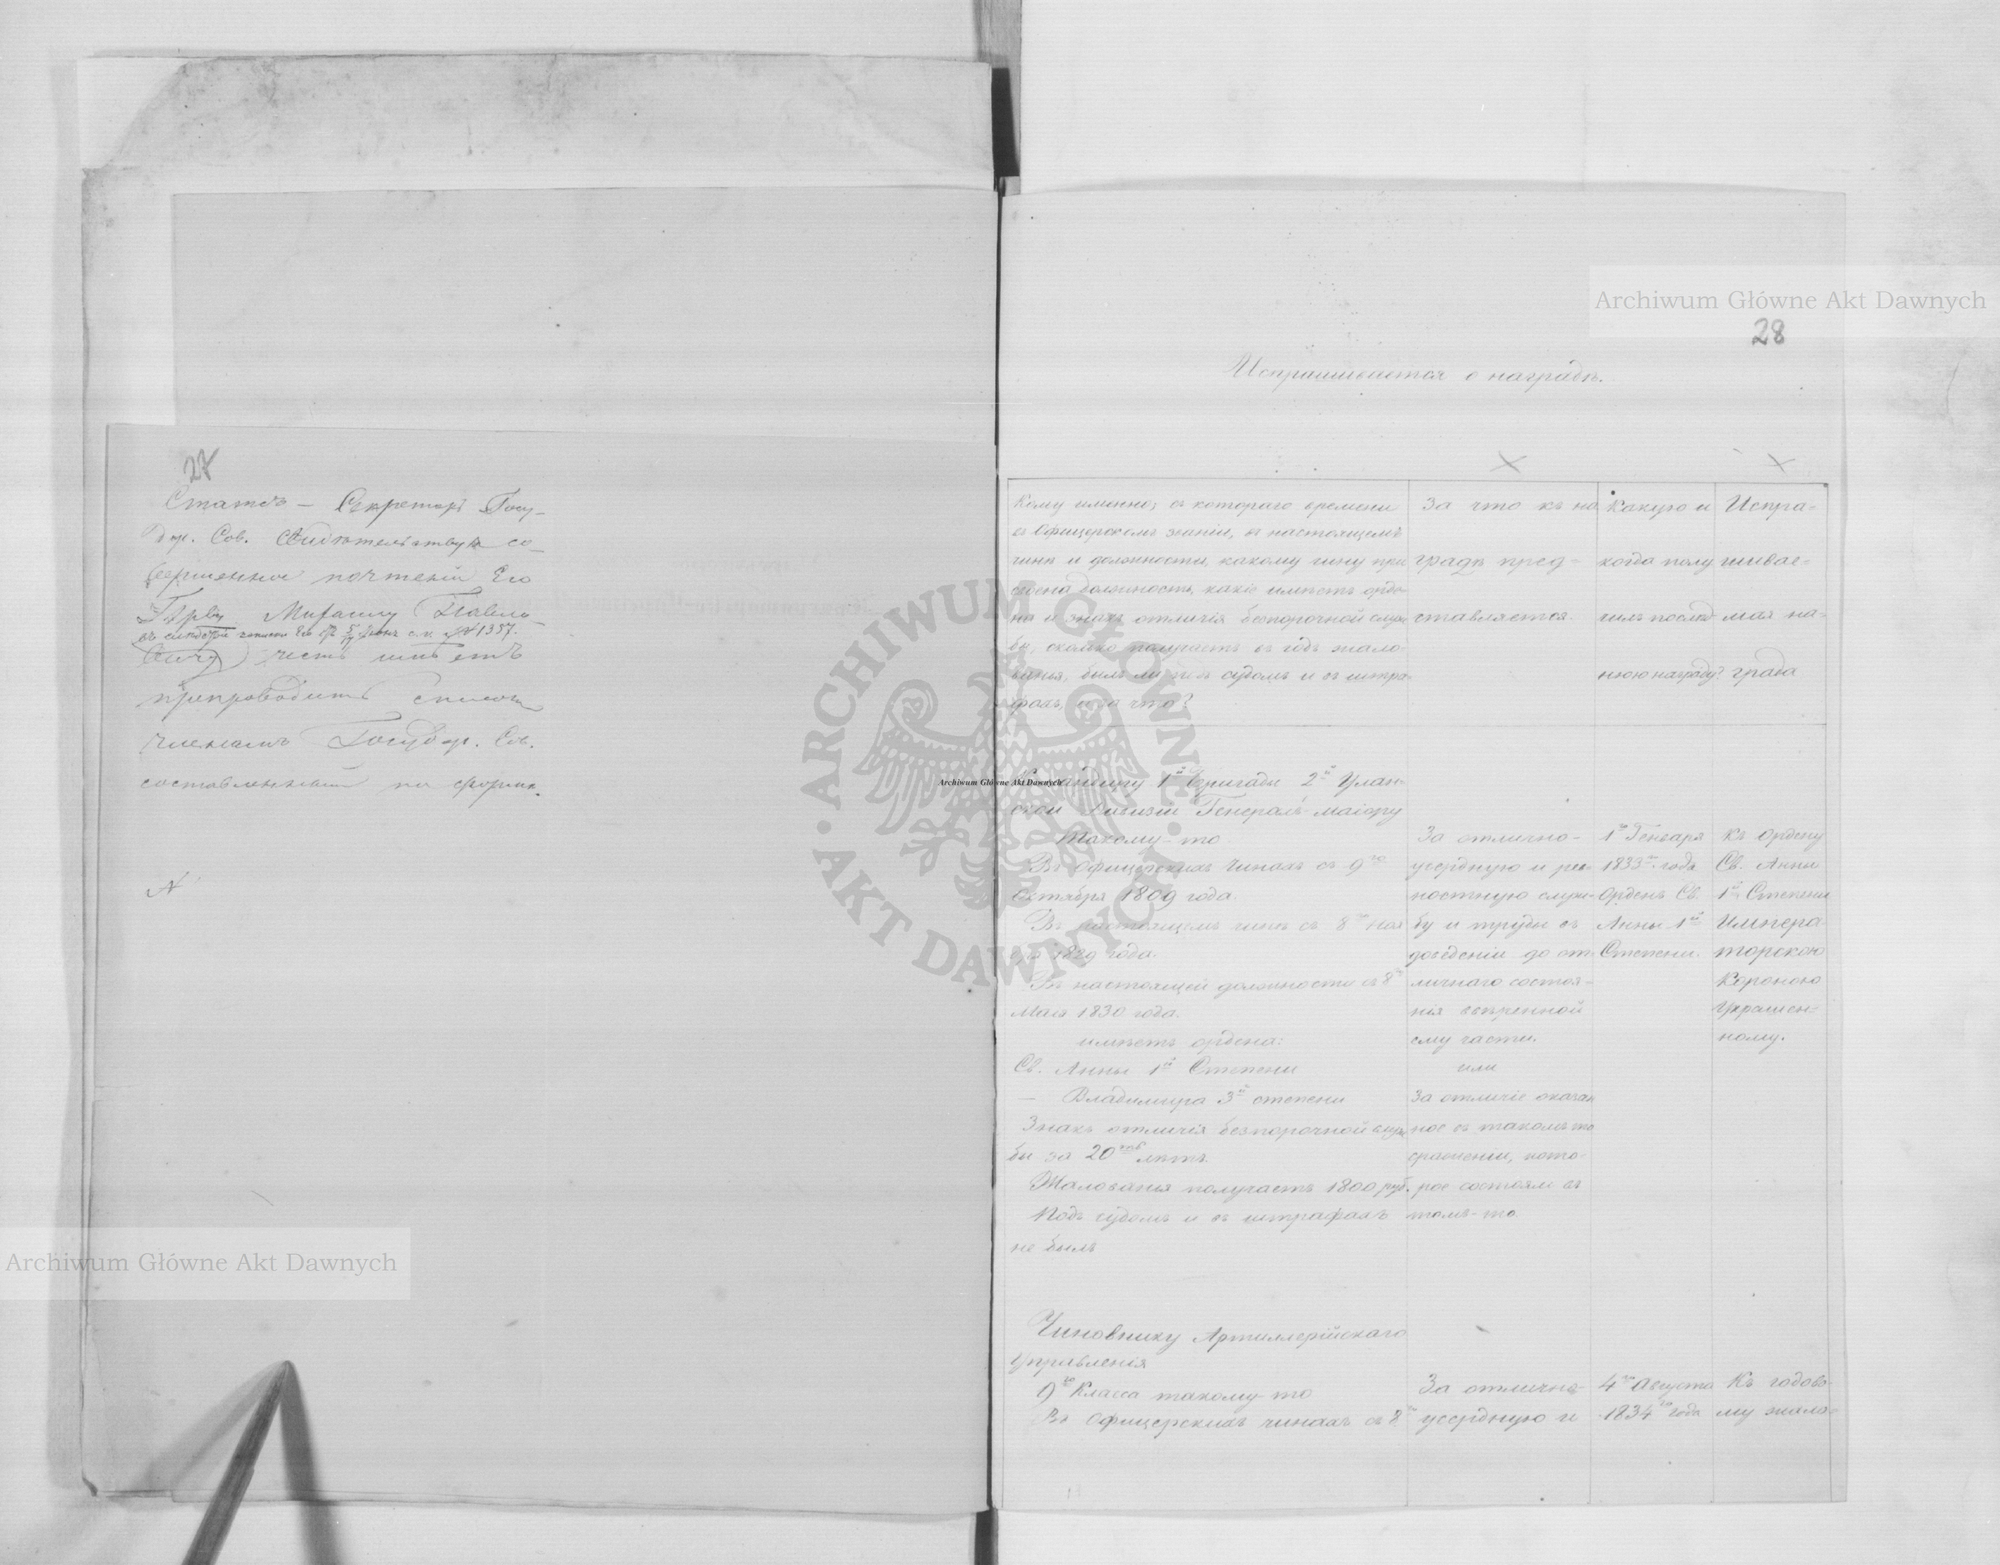 27
Статсъ – Секретарь Госу-
дар. Сов. свидѣтельствуя со-
вершенное почтеніе Его
Прву Михаилу Павло-
въ слѣдствіе записки Его отъ Іюня с. г. № 1357.
вичу честь имѣетъ
препроводить списокъ
членамъ Государ. Сов.
составленный по формѣ.
N
28
Испрашивается о наградѣ.
Кому именно; съ котораго времени
въ Офицерскомъ званіи, въ настоящемъ
чинѣ и должности, какому чину при
своена должность, какіе имѣетъ орде-
на и знакъ отличія безпорочной служ
бы, сколько получаетъ въ годъ жало-
ванья, былъ ли подъ судомъ и въ штра-
фахъ, и за что?
За что къ на
градѣ пред-
ставляется.
Какую и
когда полу
чилъ послѣд
нюю награду?
Испра-
шивае-
мая на-
града
Командиру 1й Бригады 2й Улан-
ской Дивизіи Генералъ-маіору
Такому-то
Въ офицерскихъ чинахъ съ 9го
Октября 1809 года.
Въ настоящемъ чинѣ съ 8го Ноя
бря 1829 года.
Въ настоящей должности съ 8го
Мая 1830 года.
имѣетъ ордена:
Св. Анны 1й Степени
— Владимира 3й степени
Знакъ отличія безпорочной служ
бы за 20 лѣтъ.
Жалованья получаетъ 1800 руб.
Подъ судомъ и въ штрафахъ
не былъ
За отлично-
усердную и рев
ностную служ-
бу и труды въ
доведеніи до от-
личнаго состоя-
нія ввѣренной
ему части.
или
За отличіе оказан
ное въ такомъ то
сраженіи, кото-
рое состояло въ
томъ-то.
1го Генваря
1833го года
Орденъ Св.
Анны 1й
Степени.
Къ ордену
Св. Анны
1й Степени
Импера-
торскою
Короною
Украшен-
ному.
Чиновнику Артиллерійскаго
Управленія
9го Класса такому-то
Въ Офицерскихъ чинахъ съ 8го
За отлично-
усердную и
4го Августа
1834го года
Къ годово-
му жало-
Archiwum Główne Akt Dawnych
Archiwum Główne Akt Dawnych
Archiwum Główne Akt Dawnych
ARCHIWUM GŁÓWNE · AKT DAWNYCH ·